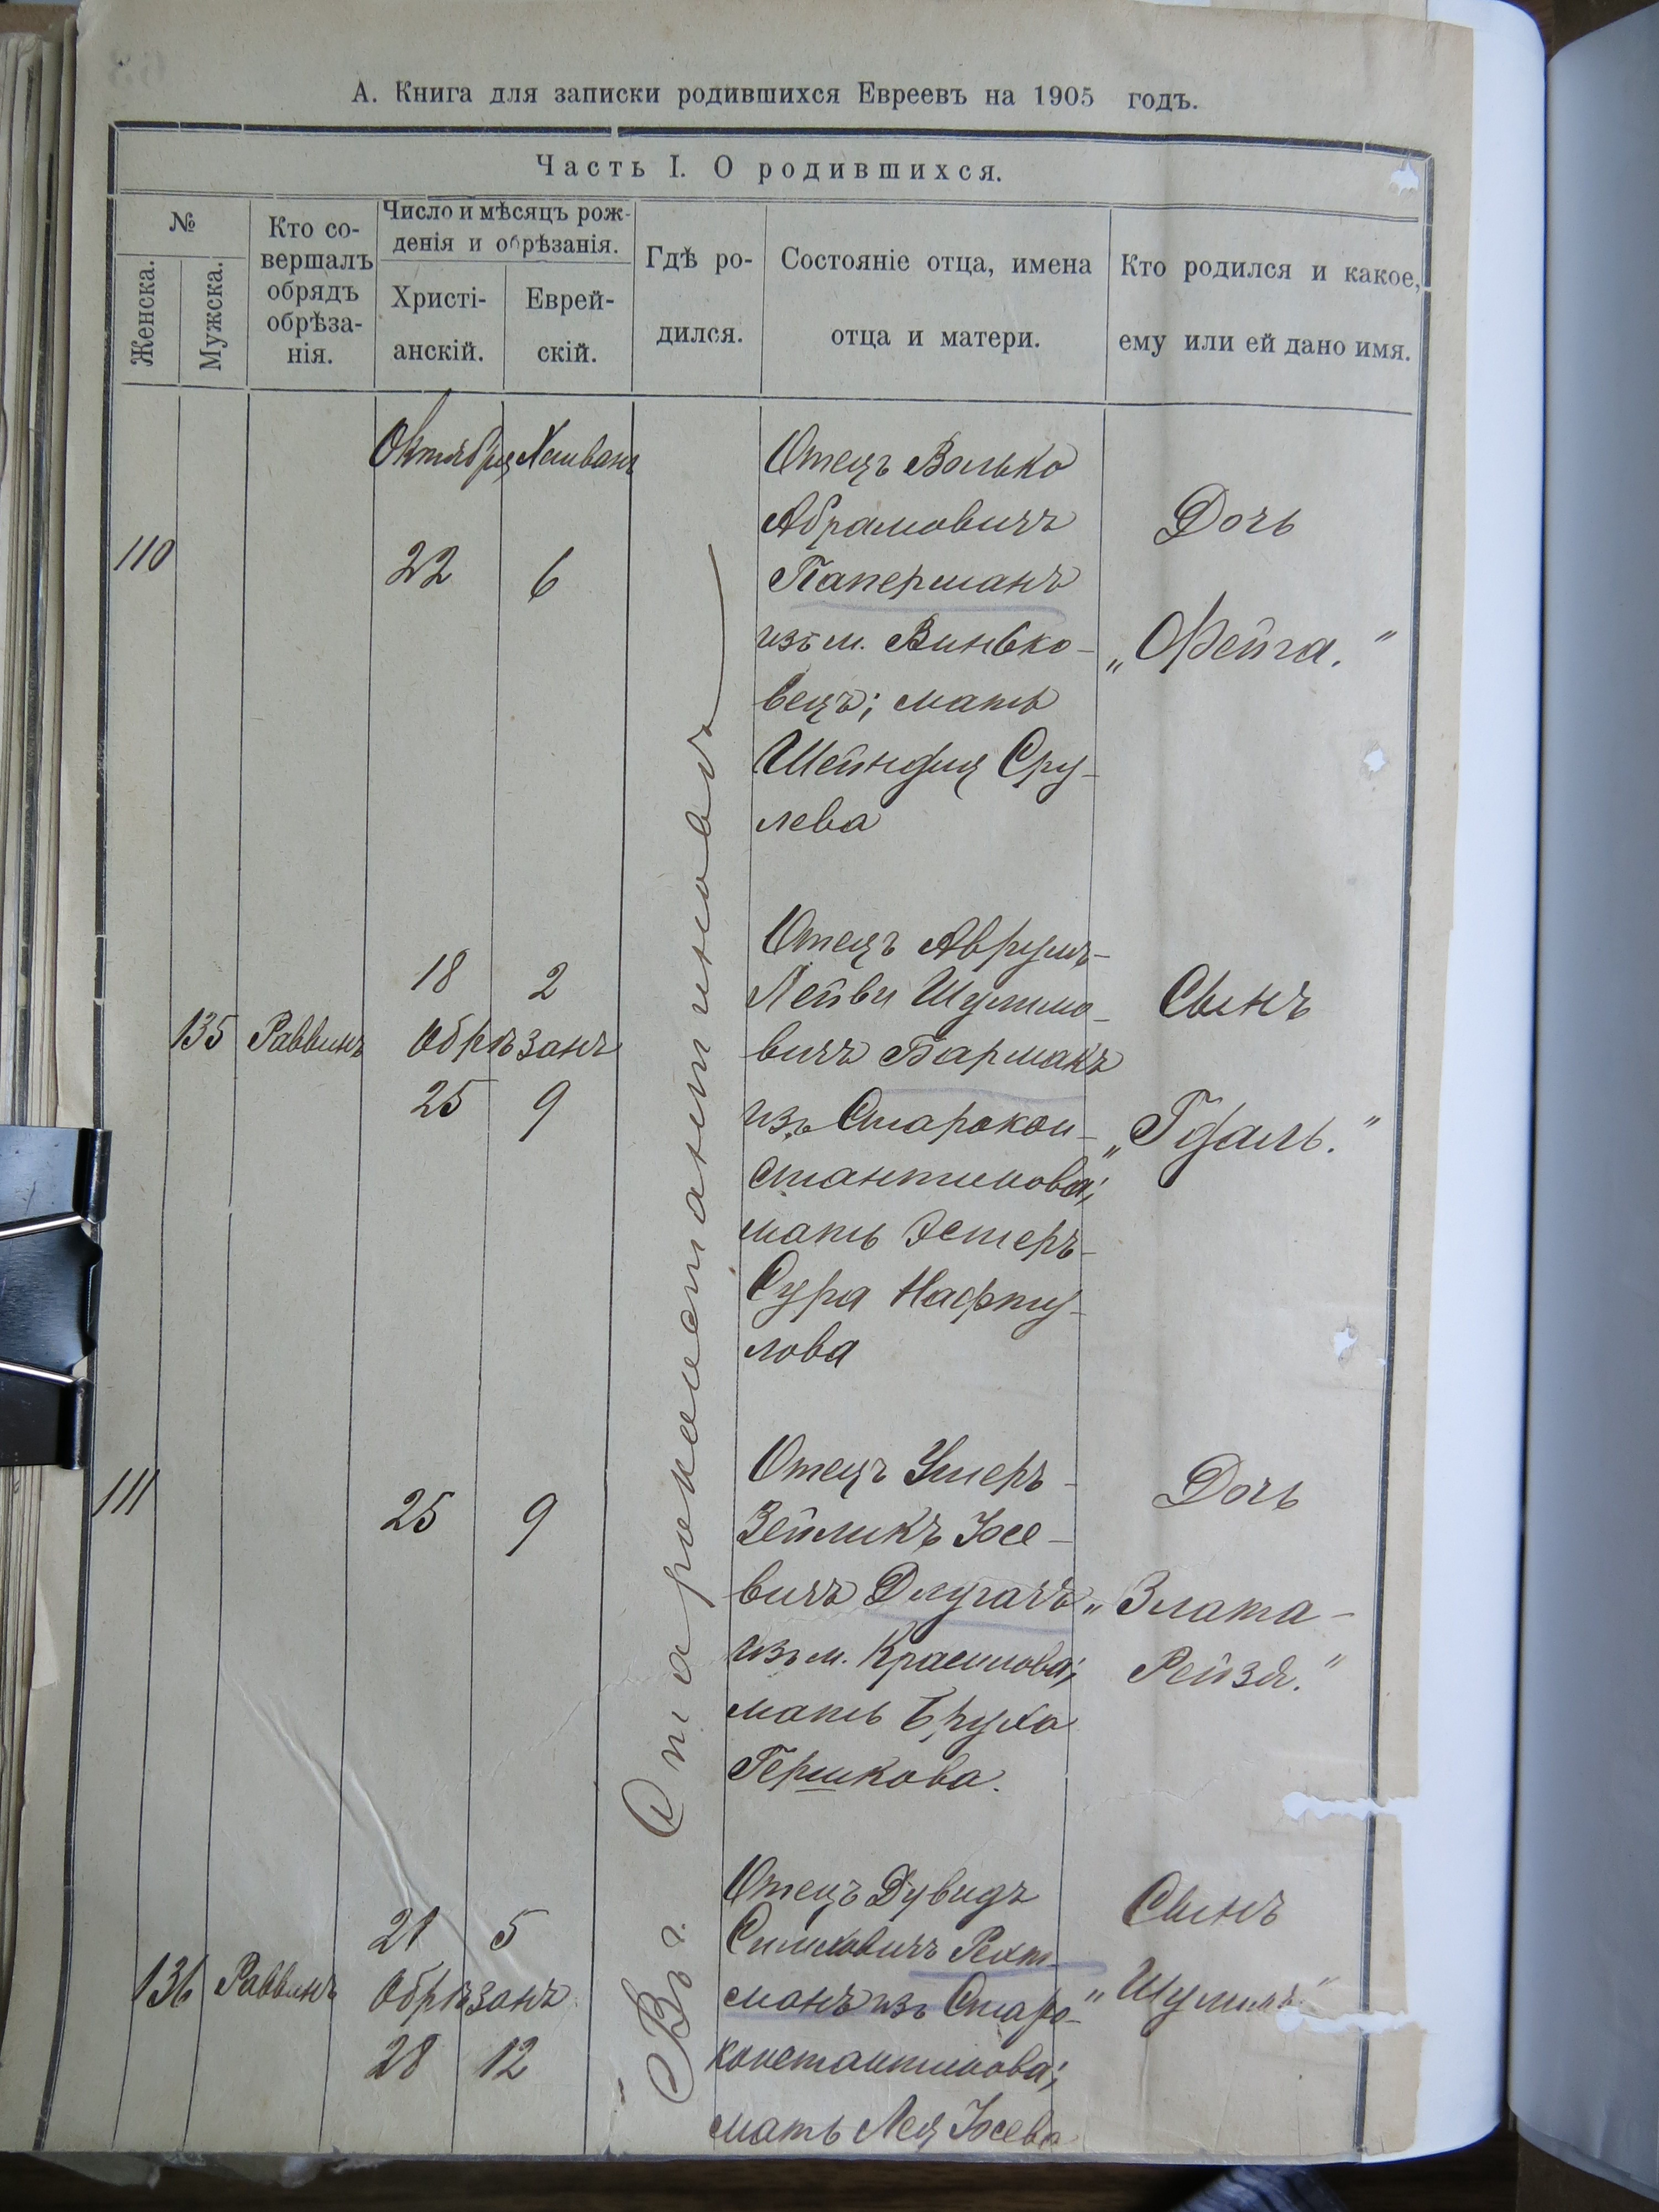 А. Книга для записки родившихся Евреевъ на 1905 годъ.
Часть I. О родившихся.
№
Женска.
Мужска.
Кто со-
вершалъ
обрядъ
обрѣза-
нія.
Число и мѣсяцъ рож-
денія и обрѣзанія.
Христі-
анскій.
Еврей-
скій.
Гдѣ ро-
дился.
Состояніе отца, имена
отца и матери.
Кто родился и какое,
ему или ей дано имя.
Октября Хешванъ
110
22 6
Отецъ Волько
Абрамовичъ
Паперманъ
изъ м. Винько-
вецъ; мать
Шейндля Сру-
лева
Дочь
„Фейга."
Въ г. Староконстантиновѣ
135 Раввинъ
18 2
Обрѣзанъ
25 9
Отецъ Аврумъ-
Лейви Шулимо-
вичъ Бармакъ
изъ Старокон-
стантинова;
мать Эстеръ-
Сура Нафту-
лова
Сынъ
„Гдаль."
111
25 9
Отецъ Ушеръ-
Зейликъ Іосе-
вичъ Длугачъ
изъ м. Красилова;
мать Бруха
Гершкова.
Дочь
„Злата-
Рейзя."
136 Раввинъ
21 5
Обрѣзанъ
28 12
Отецъ Дувидъ
Симховичъ Рехт-
манъ изъ Старо-
константинова;
мать Лея Іосева
Сынъ
„Шулимъ"